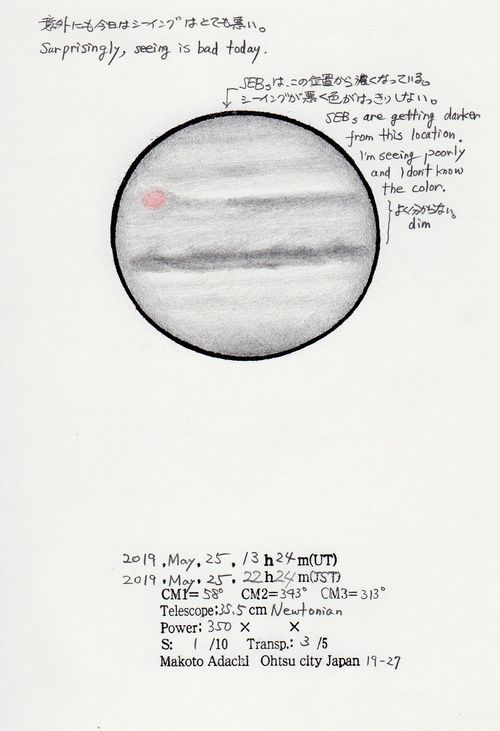 意外にも今日はシーイングはとても悪い。
Surprisingly, seeing is bad today.
SEBsは、この位置から濃くなっている。
シーイングが悪く色がはっきりしない。
SEBs are getting darker
from this location.
I'm seeing poorly
and I don't know
the color.
よく分からない。
dim
2019, May, 25, 13h24m(UT)
2019, May, 25, 22h24m(JST)
CM1= 58° CM2= 343° CM3= 313°
Telescope: 35.5 cm Newtonian
Power: 350 × ×
S: 1 /10 Transp.: 3 /5
Makoto Adachi Ohtsu city Japan 19-27